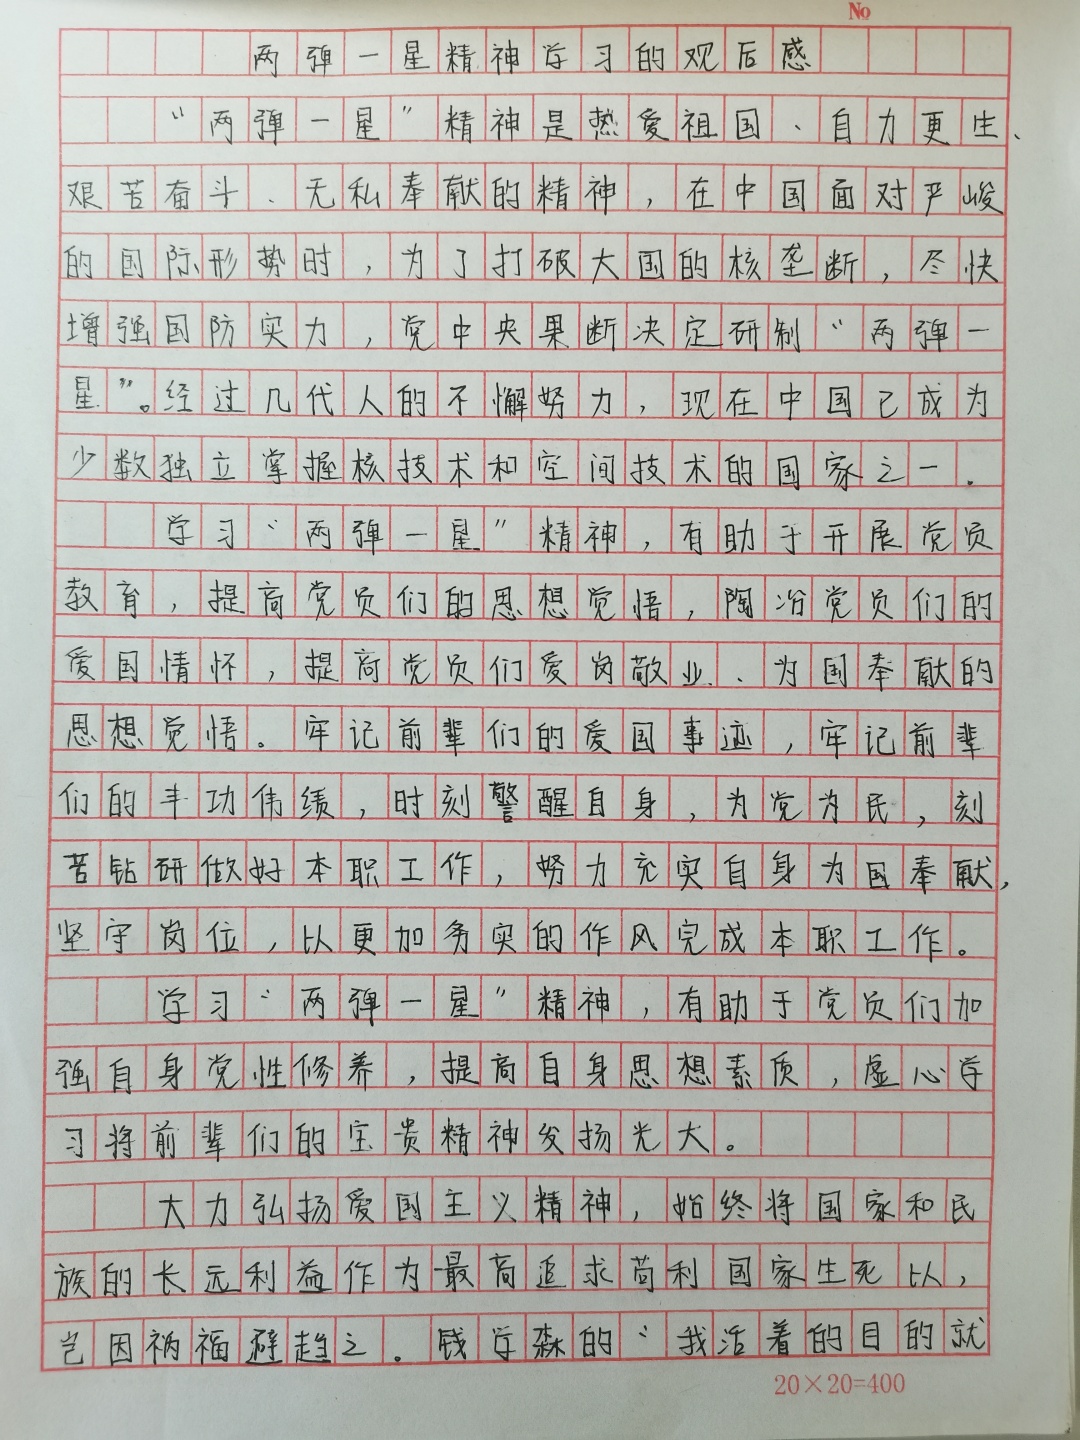 No
两弹一星精神学习的观后感
“两弹一星”精神是热爱祖国、自力更生、
艰苦奋斗、无私奉献的精神，在中国面对严峻
的国际形势时，为了打破大国的核垄断，尽快
增强国防实力，党中央果断决定研制“两弹一
星”。经过几代人的不懈努力，现在中国已成为
少数独立掌握核技术和空间技术的国家之一.
学习“两弹一星”精神，有助于开展党员
教育，提高党员们的思想觉悟，陶冶党员们的
爱国情怀，提高党员们爱岗敬业、为国奉献的
思想觉悟。牢记前辈们的爱国事迹，牢记前辈
们的丰功伟绩，时刻警醒自身，为党为民，刻
苦钻研做好本职工作，努力充实自身为国奉献，
坚守岗位，以更加务实的作风完成本职工作。
学习“两弹一星”精神，有助于党员们加
强自身党性修养，提高自身思想素质，虚心学
习将前辈们的宝贵精神发扬光大。
大力弘扬爱国主义精神，始终将国家和民
族的长远利益作为最高追求苟利国家生死以，
岂因祸福避趋之.钱学森的“我活着的目的就
20×20=400